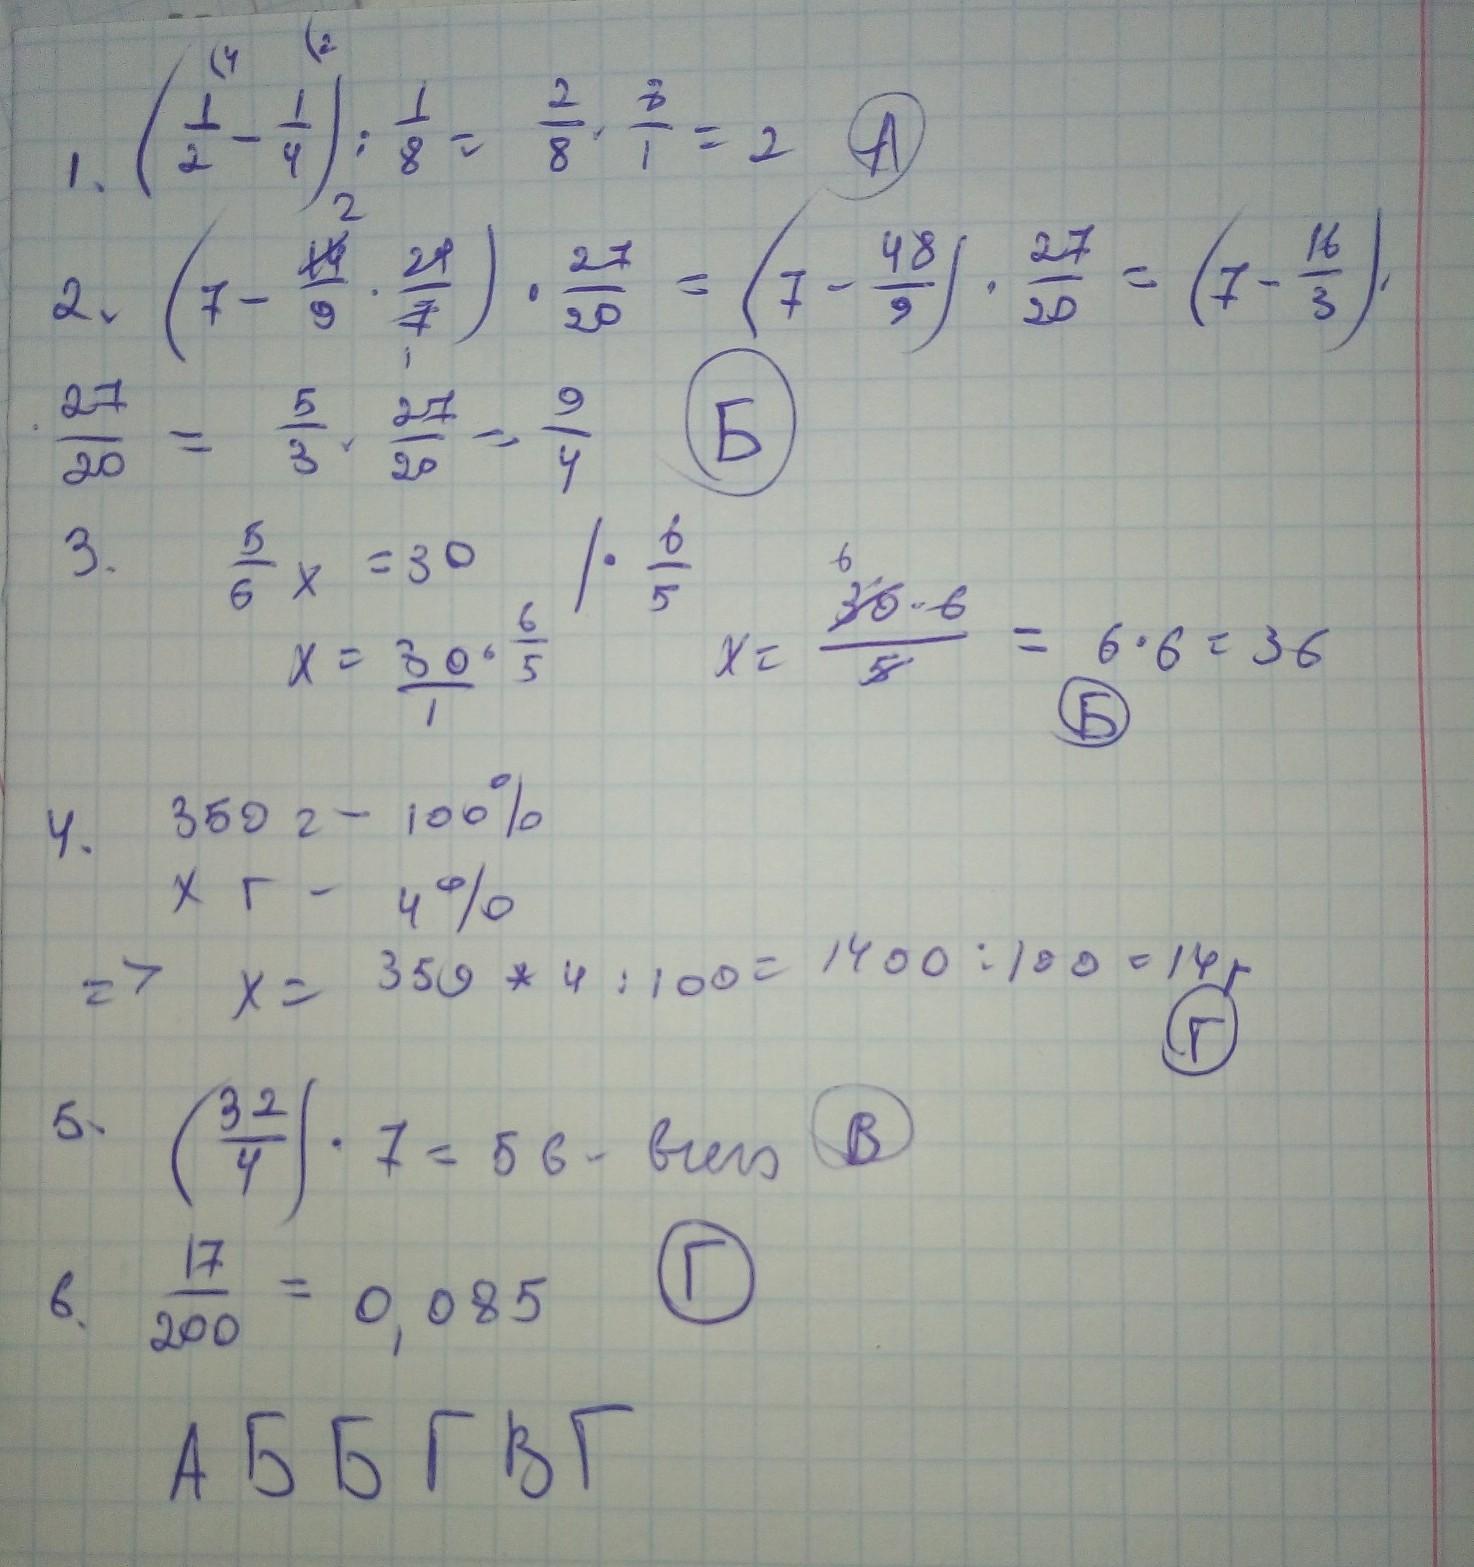 1. (1/2 - 1/4) : 1/8 = 2/8 · 8/1 = 2 А
2. (7 - 14/9 · 24/7) · 27/20 = (7 - 48/9) · 27/20 = (7 - 16/3) ·
· 27/20 = 5/3 · 27/20 = 9/4 Б
3. 5/6 x = 30 / · 6/5
x = 30/1 · 6/5 x = 30·6/5 = 6·6 = 36
Б
4. 350 г - 100%
x г - 4%
=> x = 350 * 4 : 100 = 1400 : 100 = 14г
Г
5. (32/4) · 7 = 56 - всего В
6. 17/200 = 0,085 Г
А Б Б Г В Г